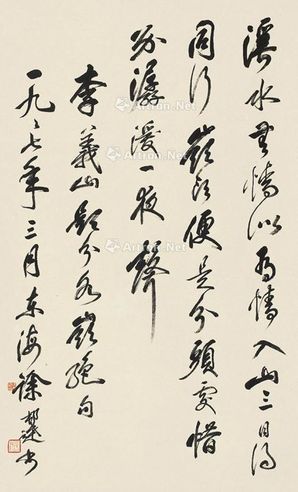 溪水無情似有情入山三日得
同行嶺頭便是分頭處惜
別潺湲一夜聲
李義山題分水嶺絕句
一九八七年三月東海徐邦達書
Artron.Net
Artron.Net